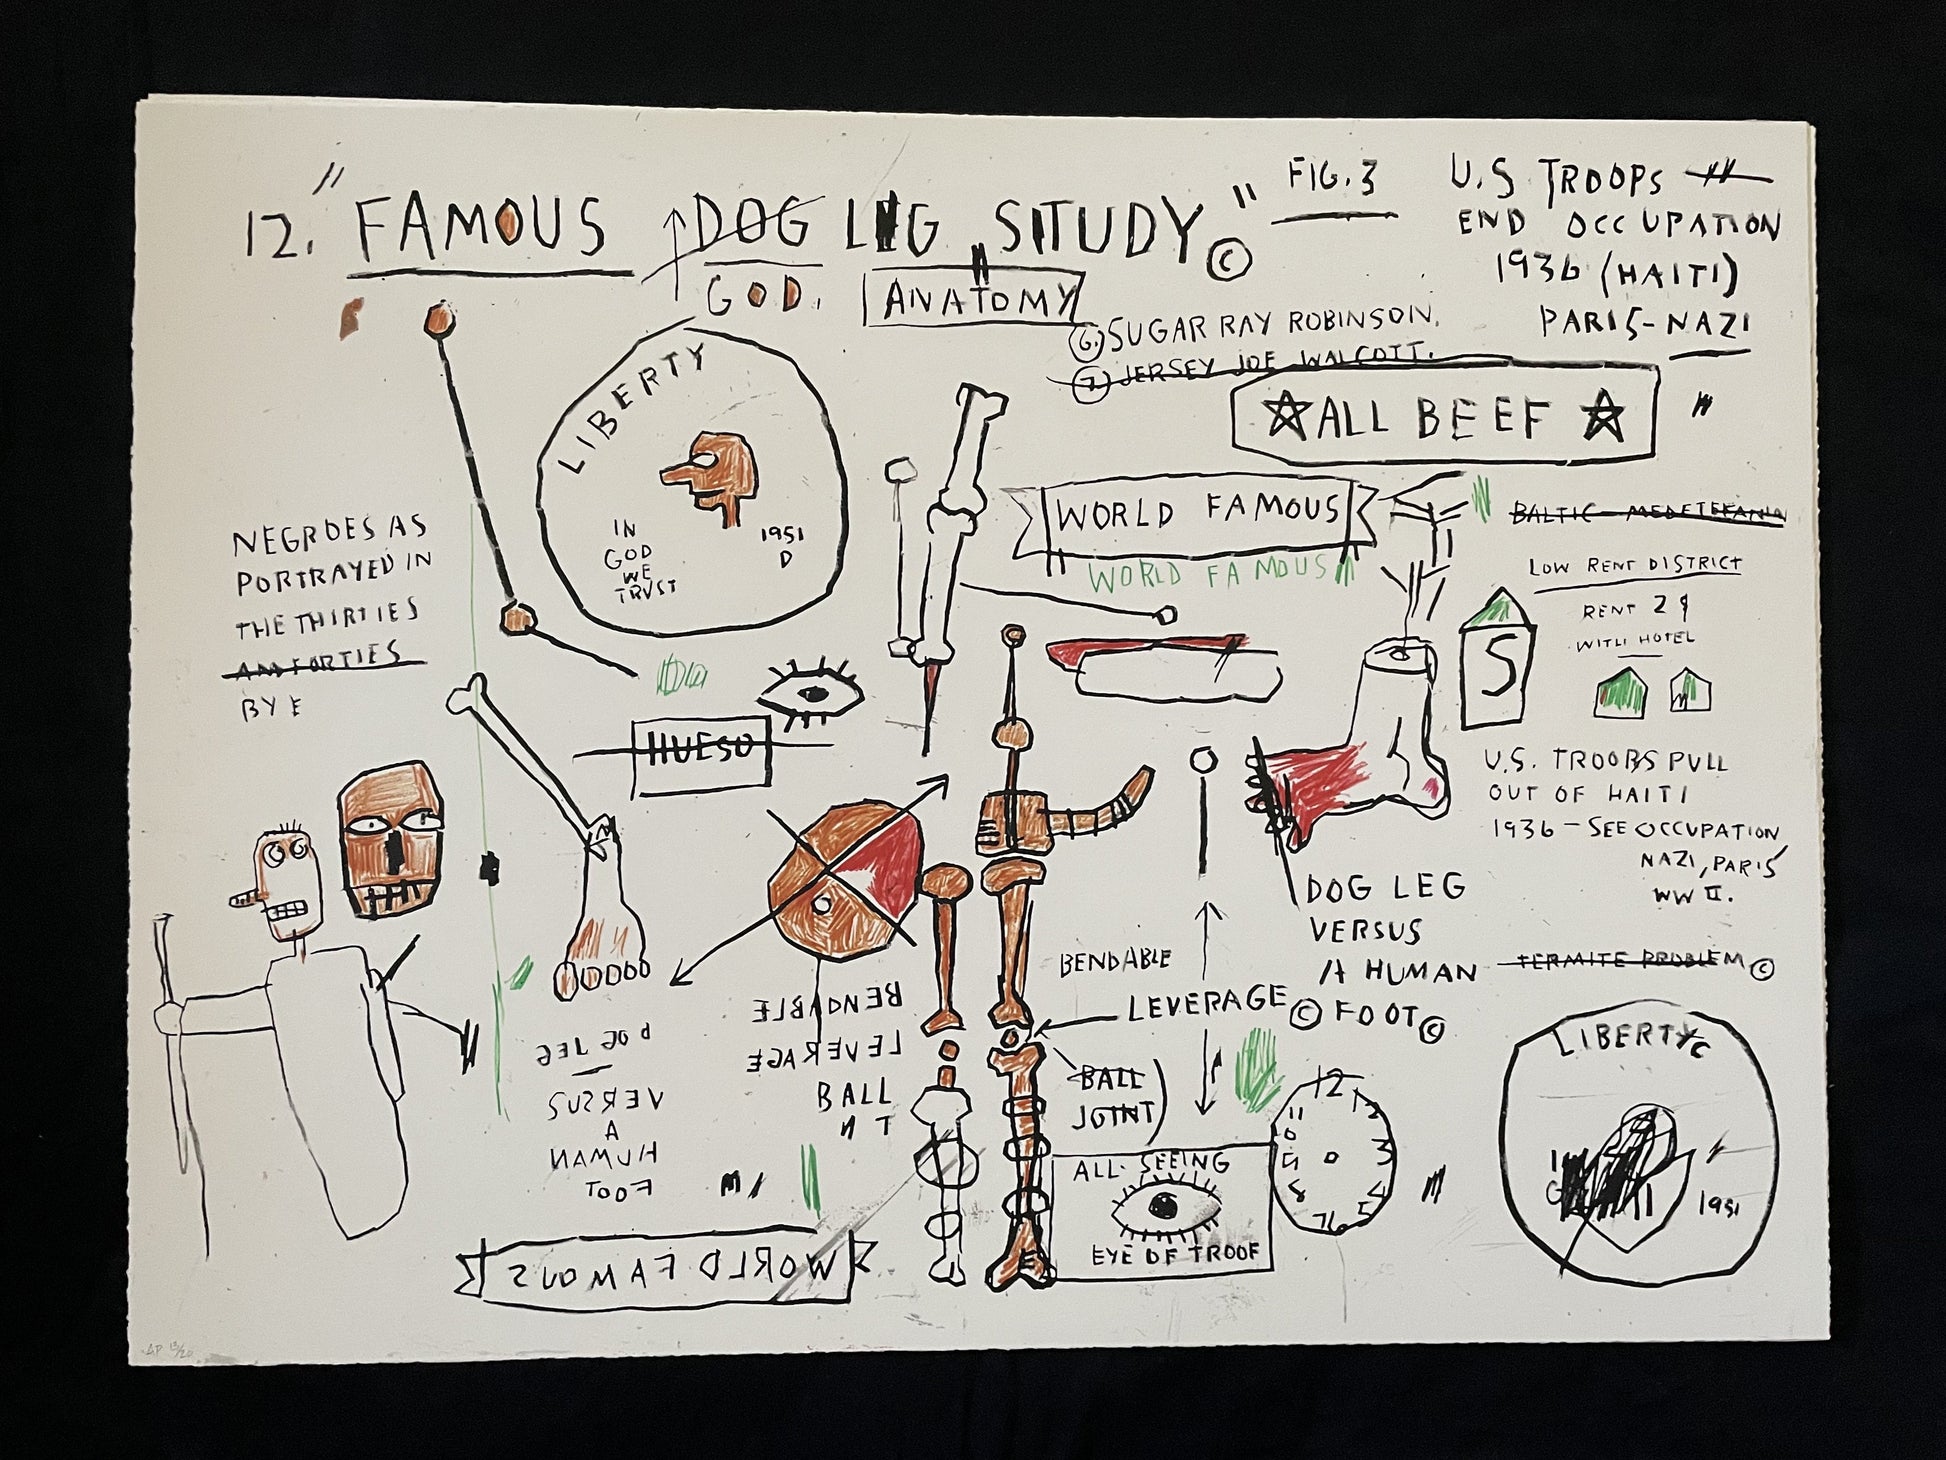 12. "FAMOUS DOG LEG STUDY" ©
GOD.
ANATOMY
FIG. 3
U.S TROOPS
END OCCUPATION
1936 (HAITI)
PARIS-NAZI
6. SUGAR RAY ROBINSON.
7. JERSEY JOE WALCOTT.
ALL BEEF
LIBERTY
IN
GOD
WE
TRVST
1951
D
WORLD FAMOUS
WORLD FAMOUS
LOW RENT DISTRICT
RENT 2
WITH HOTEL
S
NEGROES AS
PORTRAYED IN
THE THIRTIES
BY E
HUESO
U.S. TROOBS PULL
OUT OF HAITI
1936 - SEE OCCUPATION
NAZI, PARIS
WW II.
DOG LEG
VERSUS
A HUMAN
FOOT ©
TERMITE PROBLEM ©
BENDABLE
LEVERAGE ©
BALL
JOINT
BENDABLE
LEVERAGE
BALL
N T
DOG LEG
VERSUS
A
HUMAN
FOOT
ALL. SEEING
EYE OF TROOF
12
11
3
LIBERTY
1951
WORLD FAMOUS